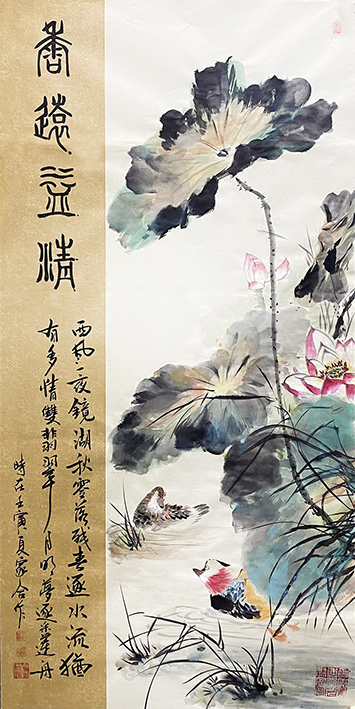 香遠益清
西風一夜鏡湖秋零落殘香逐水流猶
有多情雙翡翠月明夢逐采蓮舟
時在壬寅夏家合作